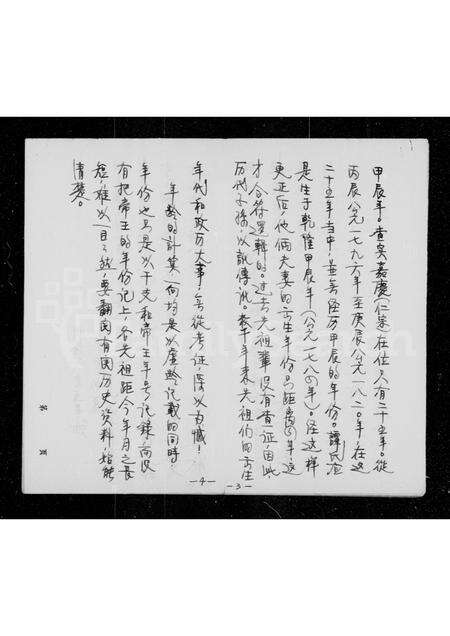 甲辰年。查实嘉慶(仁宗)在位只有二十五年。從
丙辰公元一七九六年至庚辰公元一八二〇年,在这
二十五年当中,並无经历甲辰的年份。譚氏应
是生于乾隆甲辰年(公元一七八四年)。经这样
更正后,他俩夫妻的出生年份只距离年,这
才合符逻輯的。过去先祖輩没有查证,因此
历代子孫,以訛傳訛。数千年来先祖们的出生
-3-
年代和政历大事,无從考证,深以为憾!
年龄的計算一向均是以虛龄记載的,同時
年份也只是以干支和帝王年号记錄,而没
有把帝王的年份记上,各先祖距今年月之長
短,难以一目了然,要翻閱有関历史資料,始能
清楚。
-4-
第 頁